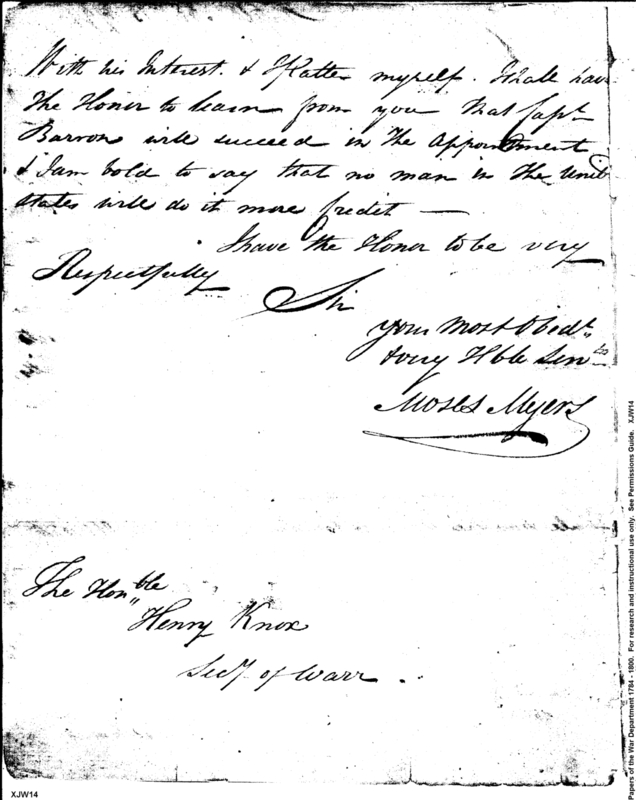 With his Interest. & I flatter myself. I shall have
The Honor to learn from you that Capt
Barron will succeed in The Appointment
& I am bold to say that no man in The Unit
States will do it more Credit —
I have the Honor to be very
Respectfully
Sir
your most Obedt
& very Hble Servt
Moses Myers
The Honble
Henry Knox
Secy of Warr.
XJW14
Papers of the War Department 1784 - 1800. For research and instructional use only. See Permissions Guide. XJW14